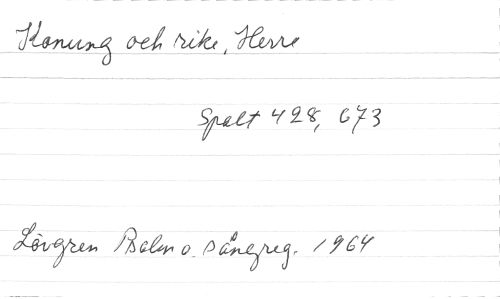 Konung och rike, Herre
Spalt 428, 673
Lövgren Psalm o. sångreg. 1964